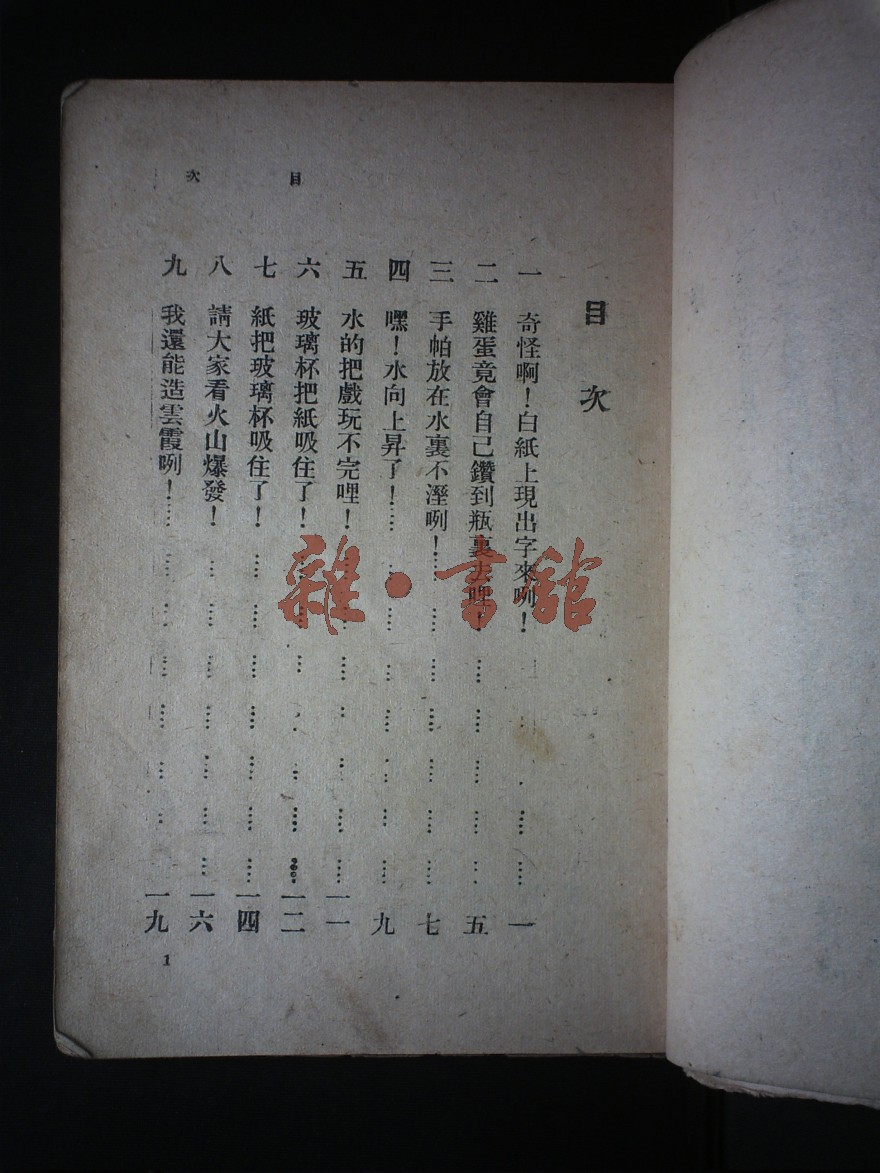 目次
目次
一 奇怪啊！白紙上現出字來咧！………………一
二 雞蛋竟會自己鑽到瓶裏去哩！………………五
三 手帕放在水裏不溼咧！………………七
四 嘿！水向上昇了！………………九
五 水的把戲玩不完哩！………………一一
六 玻璃杯把紙吸住了！………………一二
七 紙把玻璃杯吸住了！………………一四
八 請大家看火山爆發！………………一六
九 我還能造雲霞咧！………………一九
1
雜·書館